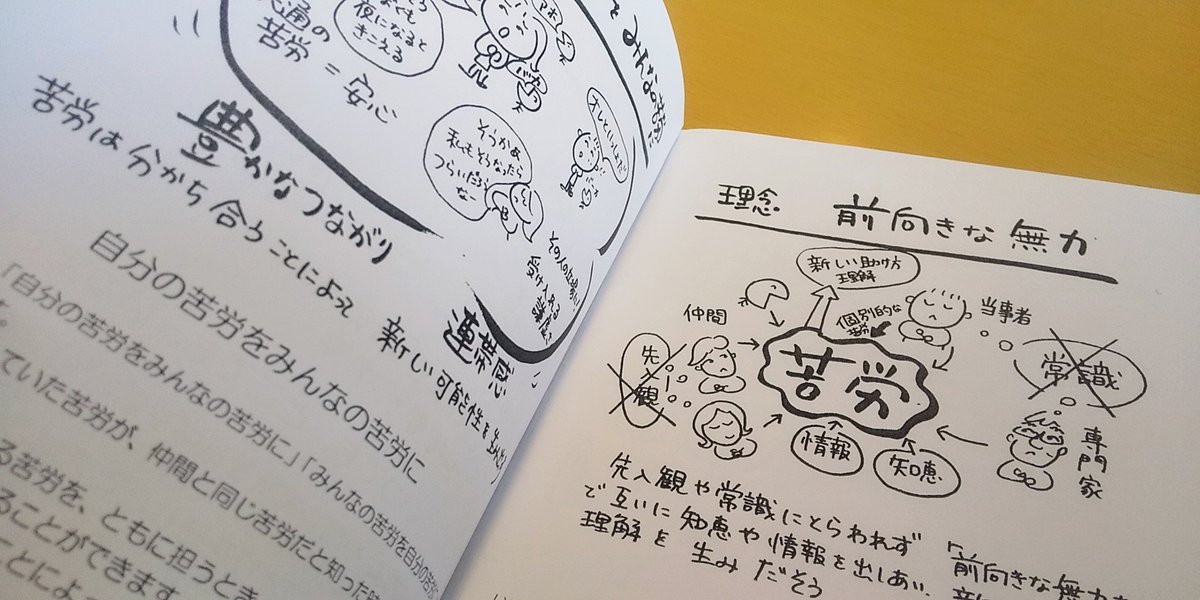 みんなの苦労
夜になると
きこえる
共通の
苦労 = 安心
そうかぁ
私もそうなったら
つらいだろう
なー
オレといっしょだ
豊かなつながり
連帯感
苦労は分かち合うことによって 新しい可能性を生みだす
自分の苦労をみんなの苦労に
「自分の苦労をみんなの苦労に」「みんなの苦労を自分の苦労に」
ていた苦労が、仲間と同じ苦労だと知った時
る苦労を、ともに担うとき
ることができます
理念 前向きな無力
新しい助け方
理解
仲間
個別的な
苦労
当事者
常識
先入観
苦労
情報
知恵
専門家
先入観や常識にとらわれず
で互いに知恵や情報を出しあい、
理解を生みだそう
「前向きな無力